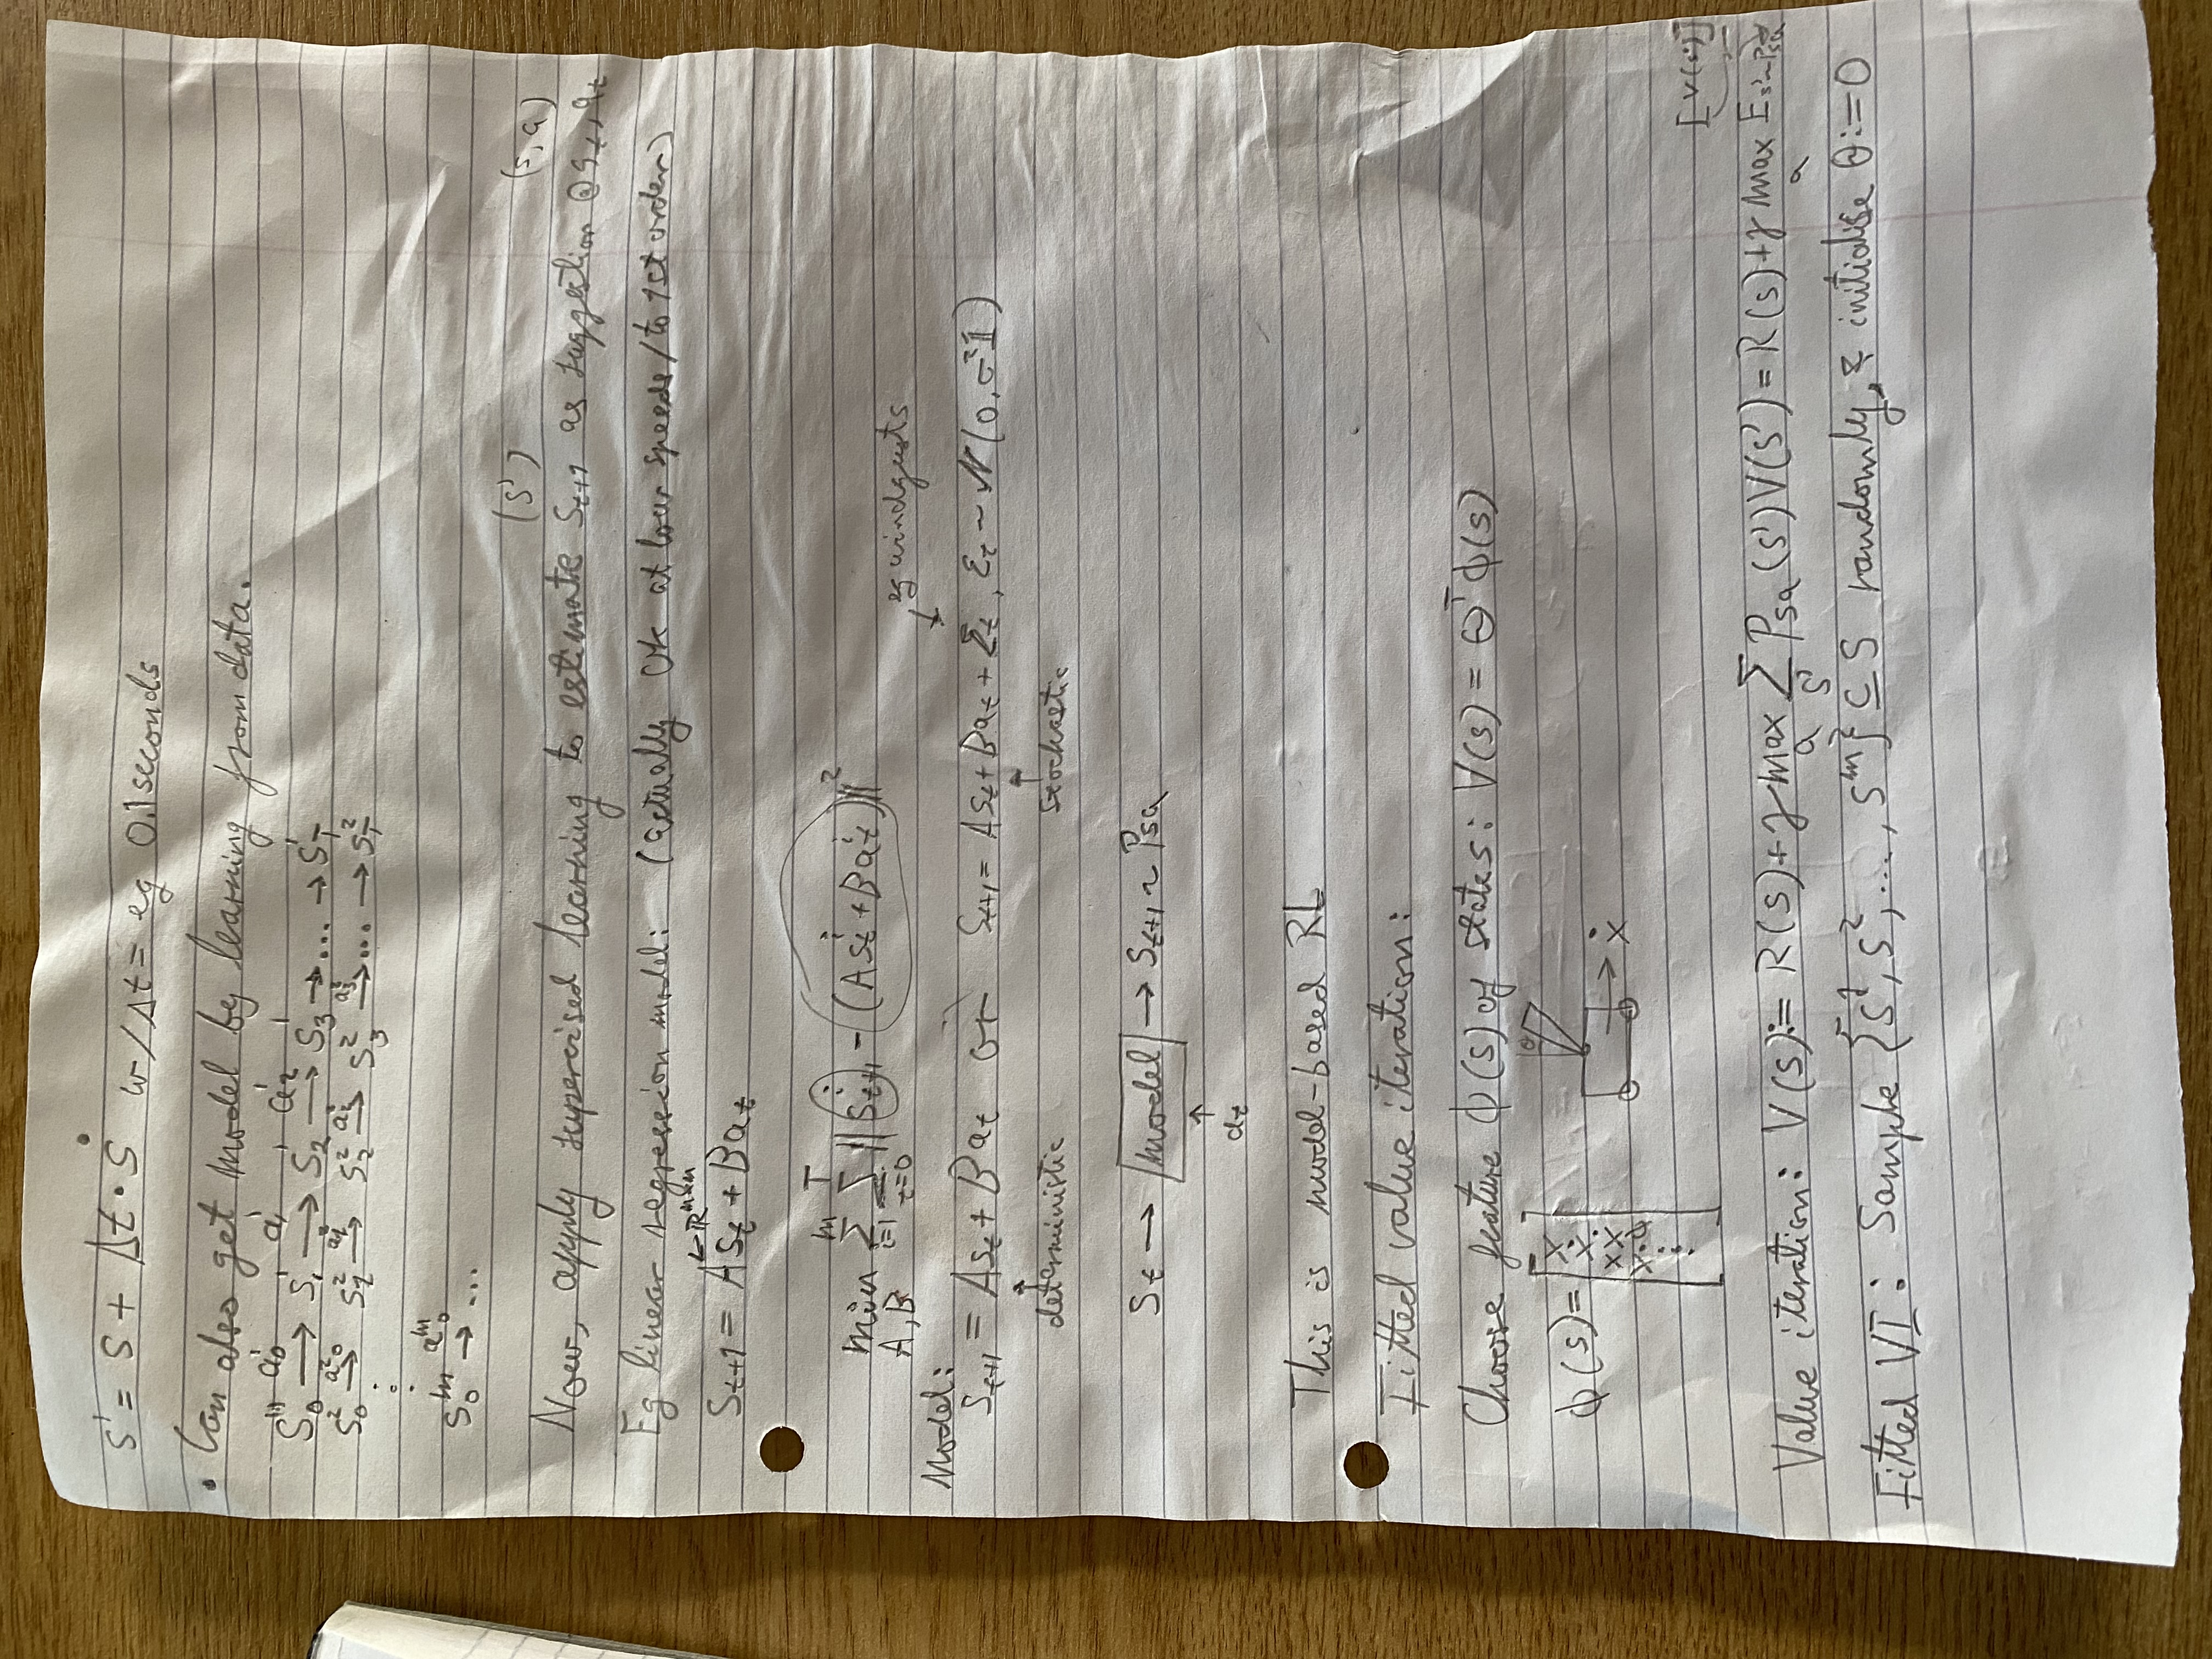 s' = s + Δt · ṡ w/Δt = eg 0.1 seconds
• Can also get model by learning from data.
S₀⁽¹⁾ →(a₀¹) S₁¹ →(a₁¹) S₂¹ →(a₂¹) S₃¹ → ... → S_T¹
S₀² →(a₀²) S₁² →(a₁²) S₂² →(a₂²) S₃² →(a₃²) ... → S_T²
⋮
S₀ᵐ →(a₀ᵐ) ...
(s') (s, a)
Now, apply supervised learning to estimate S_{t+1} as suggestion @ s_t, a_t
Eg linear regression model: (actually OK at low speeds/to 1st order)
← ℝⁿˣⁿ
S_{t+1} = A s_t + B a_t
min_{A,B} Σ_{i=1}^{m} Σ_{t=0}^{T} ‖ s_{t+1}^i - (A s_t^i + B a_t^i) ‖²
eg windgusts
↓
Model:
S_{t+1} = A s_t + B a_t or S_{t+1} = A s_t + B a_t + ε_t, ε_t ~ N(0, σ²𝟙)
↑ ↑
deterministic stochastic
S_t → [model] → S_{t+1} ~ P_{sa}
↑
a_t
This is model-based RL
Fitted value iteration:
Choose feature ϕ(s) of states: V(s) = θᵀϕ(s)
ϕ(s) = [x
ẋ
xẋ
x·ϕ
⋮]
θ
→ ẋ
[V(s')]
Value iteration: V(s) := R(s) + γ max_a Σ_{s'} P_{sa}(s')V(s') = R(s) + γ max_a E_{s'~P_{sa}}
Fitted VI: Sample {s¹, s², ..., sᵐ} ⊆ S randomly, & initialise θ := 0